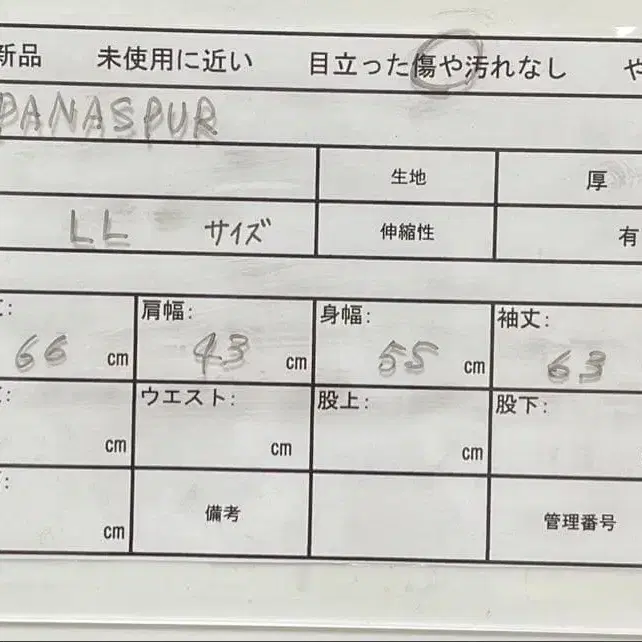 新品 未使用に近い 目立った傷や汚れなし や
PANASPUR
生地 厚
LL サイズ 伸縮性 有
: 肩幅: 身幅: 袖丈:
66 cm 43 cm 55 cm 63
: ウエスト: 股上: 股下:
cm cm cm
: 備考 管理番号
cm